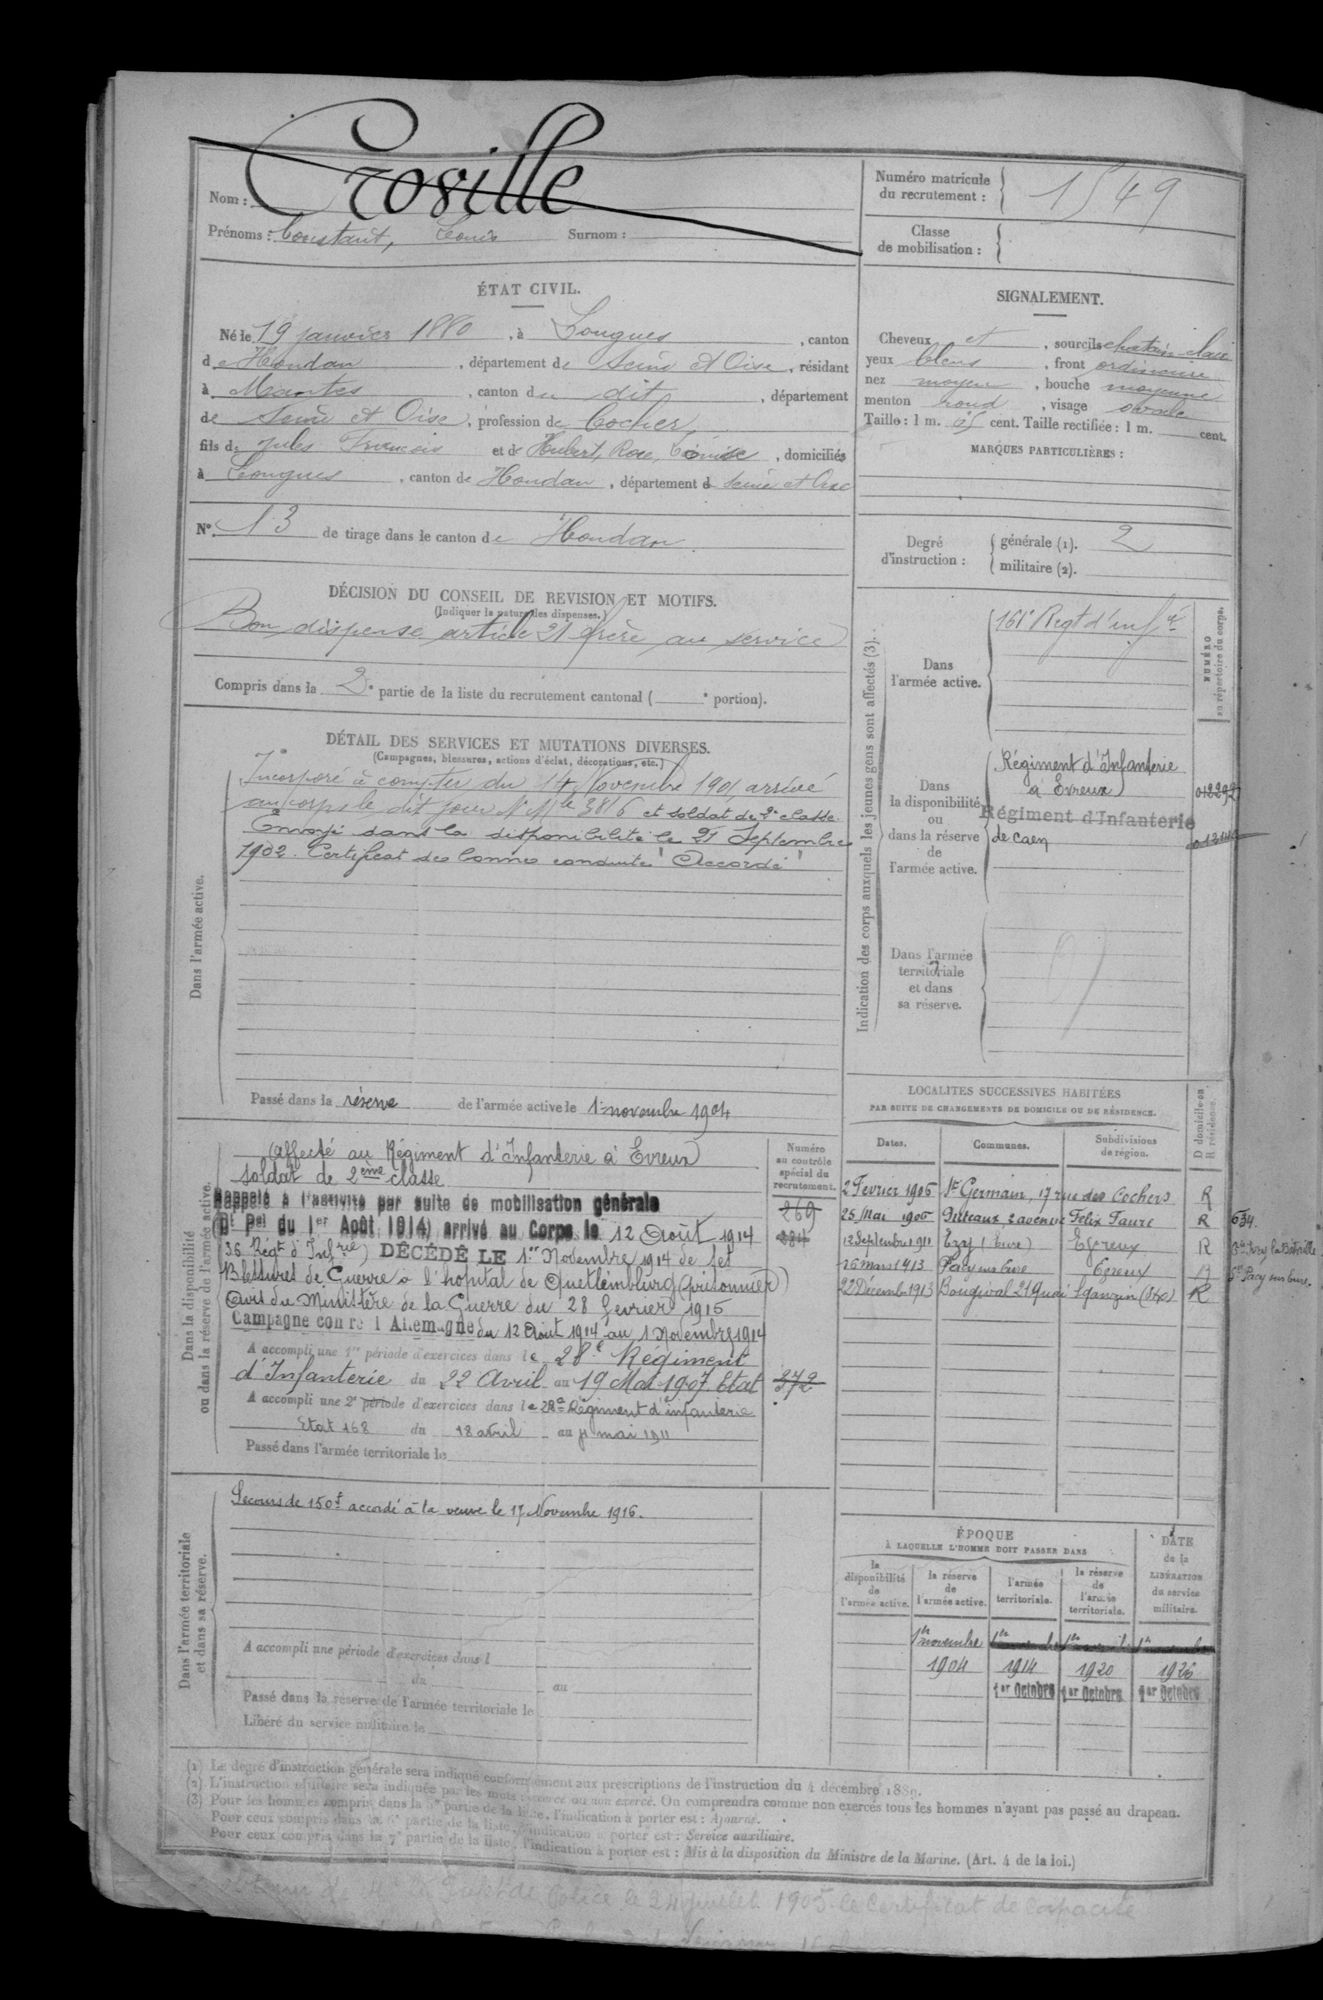 Nom : Croville
Prénoms : Constant, Louis Surnom :
Numéro matricule du recrutement : 1549
Classe de mobilisation :
ÉTAT CIVIL.
Né le 19 janvier 1880, à Longnes, canton
de Houdan, département de Seine et Oise, résidant
à Mantes, canton du dit, département
de Seine et Oise, profession de Cocher,
fils de Jules François et de Hubert, Rose, domiciliés
à Longnes, canton de Houdan, département de Seine et Oise
N° 13 de tirage dans le canton de Houdan
SIGNALEMENT.
Cheveux et, sourcils chatain clair
yeux bleus, front ordinaire
nez moyen, bouche moyenne
menton rond, visage ovale
Taille : 1 m. cent. Taille rectifiée : 1 m. cent.
MARQUES PARTICULIÈRES :
Degré d'instruction : générale (1). 2
militaire (2).
DÉCISION DU CONSEIL DE REVISION ET MOTIFS.
(Indiquer la nature des dispenses.)
Bon dispense article 21 frère au service
Compris dans la 2e partie de la liste du recrutement cantonal ( e portion).
DÉTAIL DES SERVICES ET MUTATIONS DIVERSES.
(Campagnes, blessures, actions d'éclat, décorations, etc.)
Dans l'armée active.
Incorporé à compter du 14 Novembre 1901, arrivé
au corps le dit jour Nº Mle 3816 et soldat de 2e classe.
Envoyé dans la disponibilité le 21 Septembre
1902. Certificat de bonne conduite "Accordé"
Passé dans la réserve de l'armée active le 1er novembre 1904
Indication des corps auxquels les jeunes gens sont affectés (3).
NUMÉRO au répertoire du corps.
Dans l'armée active.
Regt d'infie
Dans la disponibilité ou dans la réserve de l'armée active.
Régiment d'Infanterie
à Evreux
Régiment d'Infanterie
de Caen
Dans l'armée territoriale et dans sa réserve.
Dans la disponibilité ou dans la réserve de l'armée active.
Numéro au contrôle spécial du recrutement.
Affecté au Régiment d'Infanterie à Evreux
soldat de 2ème classe
Rappelé à l'activité par suite de mobilisation générale
(Dt Pel du 1er Août 1914) arrivé au Corps le 12 Août 1914
(36 Régt d'Infrie) DÉCÉDÉ LE 1er Novembre 1914 de ses
Blessures de Guerre à l'hopital de Quetlemburg (prisonnier)
Avis du Ministère de la Guerre du 28 fevrier 1916
Campagne contre l'Allemagne du 12 Août 1914 au 1 Novembre 1914
269
A accompli une 1re période d'exercices dans le 28e Régiment
d'Infanterie du 22 Avril au 19 Mai 1907. Etat 372
A accompli une 2e période d'exercices dans le 28e Régiment d'infanterie
Etat 168 du 18 avril au 4 mai 1911
Passé dans l'armée territoriale le
LOCALITÉS SUCCESSIVES HABITÉES
PAR SUITE DE CHANGEMENTS DE DOMICILE OU DE RÉSIDENCE.
Dates. Communes. Subdivisions de région. D domicile ou R résidence.
2 Fevrier 1906 St Germain, 17 rue des Cochers R
25 Mai 1906 Puteaux, 2 avenue Felix Faure R 634.
12 Septembre 1911 Ezy (Eure) Evreux R
26 mars 1913 Pacy sur Eure Evreux Pacy sur Eure.
22 Décembre 1913 Bougival 21 Quai Sganzin (S&O) R
Dans l'armée territoriale et dans sa réserve.
Secours de 150f accordé à la veuve le 17 Novembre 1916.
A accompli une période d'exercices dans l
du au
Passé dans la réserve de l'armée territoriale le
Libéré du service militaire le
ÉPOQUE
À LAQUELLE L'HOMME DOIT PASSER DANS
la disponibilité de l'armée active. la réserve de l'armée active. l'armée territoriale. la réserve de l'armée territoriale.
DATE de la LIBÉRATION du service militaire.
1er novembre
1904 1914 1920 1926
1er Octobre 1er Octobre 1er Octobre
(1) Le degré d'instruction générale sera indiqué conformément aux prescriptions de l'instruction du 4 décembre 1889.
(2) L'instruction militaire sera indiquée par les mots exercé ou non exercé. On comprendra comme non exercés tous les hommes n'ayant pas passé au drapeau.
(3) Pour les hommes compris dans la 5e partie de la liste, l'indication à porter est : Ajourné.
Pour ceux compris dans la 6e partie de la liste, l'indication à porter est : Service auxiliaire.
Pour ceux compris dans la 7e partie de la liste, l'indication à porter est : Mis à la disposition du Ministre de la Marine. (Art. 4 de la loi.)
de Police le 24 juillet 1905 le Certificat de Capacité